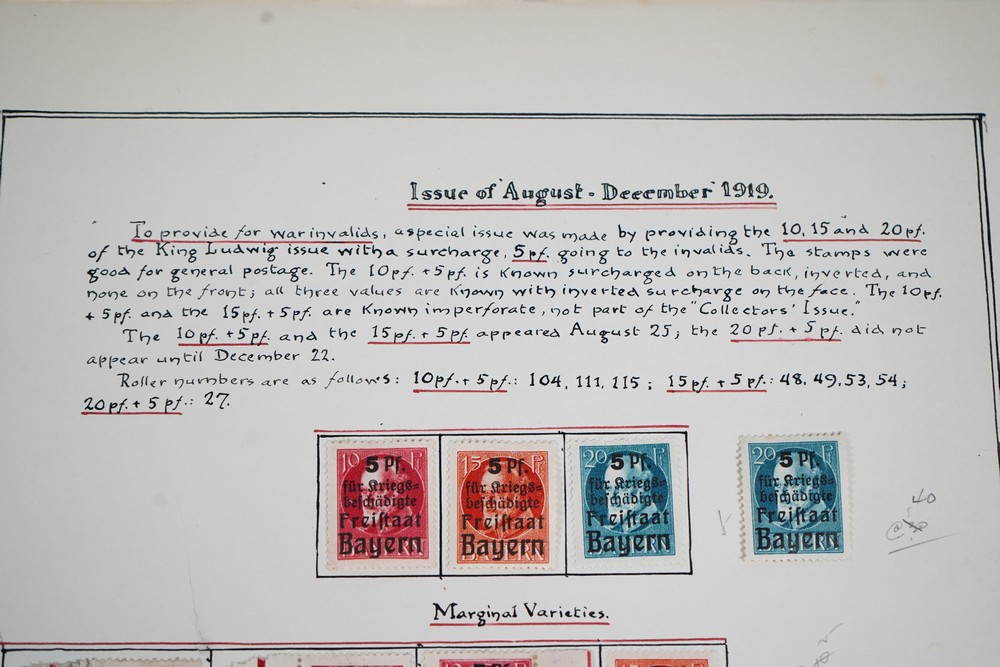 Issue of August - December 1919.
To provide for war invalids, a special issue was made by providing the 10, 15 and 20 pf.
of the King Ludwig issue with a surcharge, 5 pf. going to the invalids. The stamps were
good for general postage. The 10 pf. + 5 pf. is known surcharged on the back, inverted, and
none on the front; all three values are known with inverted surcharge on the face. The 10 pf.
+ 5 pf. and the 15 pf. + 5 pf. are known imperforate, not part of the "Collectors' Issue."
The 10 pf. + 5 pf. and the 15 pf. + 5 pf. appeared August 25; the 20 pf. + 5 pf. did not
appear until December 22.
Roller numbers are as follows: 10 pf. + 5 pf.: 104, 111, 115; 15 pf. + 5 pf.: 48, 49, 53, 54;
20 pf. + 5 pf.: 27.
10 Pf
5 Pf.
für Kriegs=
beschädigte
Freistaat
Bayern
15 Pf
5 Pf.
für Kriegs=
beschädigte
Freistaat
Bayern
20 Pf
5 Pf.
für Kriegs=
beschädigte
Freistaat
Bayern
20 Pf
5 Pf.
für Kriegs=
beschädigte
Freistaat
Bayern
40
@
Marginal Varieties.